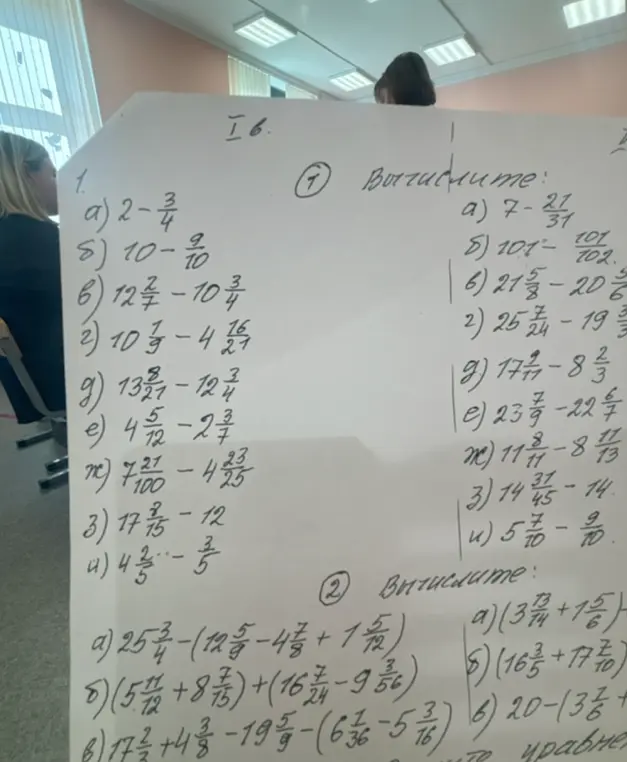 I в.
1.
① Вычислите:
а) 2 - 3/4
б) 10 - 9/10
в) 12 2/7 - 10 3/4
г) 10 1/9 - 4 16/21
д) 13 8/21 - 12 3/4
е) 4 5/12 - 2 3/7
ж) 7 21/100 - 4 23/25
з) 17 8/15 - 12
и) 4 2/5 - 3/5
а) 7 - 21/31
б) 101 - 101/102.
в) 21 5/8 - 20 5/6
г) 25 7/24 - 19
д) 17 9/11 - 8 2/3
е) 23 7/9 - 22 6/7
ж) 11 8/11 - 8 11/13
з) 14 31/45 - 14.
и) 5 7/10 - 9/10.
② Вычислите:
а) 25 3/4 - (12 5/9 - 4 7/8 + 1 5/12)
б) (5 11/12 + 8 7/15) + (16 7/24 - 9 3/56)
в) 17 2/3 + 4 3/8 - 19 5/9 - (6 1/36 - 5 3/16)
а) (3 13/14 + 1 5/6) -
б) (16 3/5 + 17 7/10)
в) 20 - (3 1/6 +
уравне